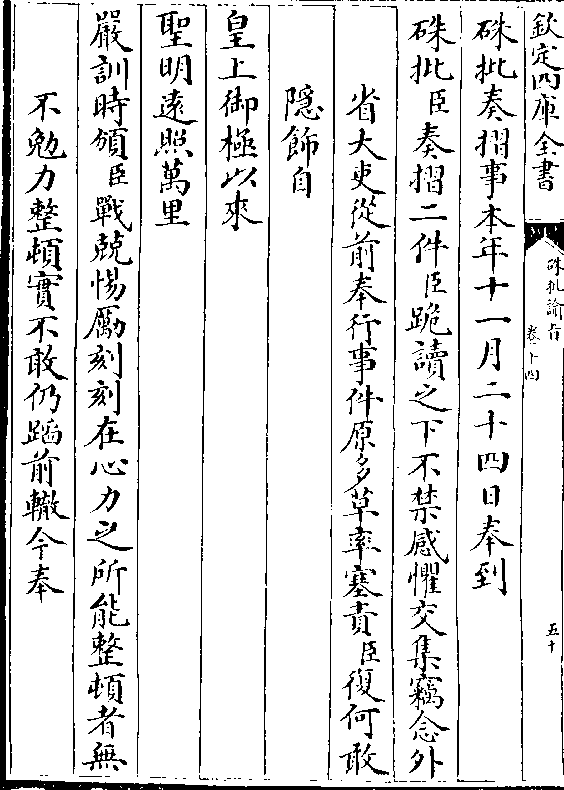 欽定四庫全書
硃批諭旨
卷十四
五十
硃批奏摺事本年十一月二十四日奉到
硃批臣奏摺二件臣跪讀之下不禁感懼交集竊念外
省大吏從前奉行事件原多草率塞責臣復何敢
隱飾自
皇上御極以來
聖明遠照萬里
嚴訓時頒臣戰兢惕厲刻刻在心力之所能整頓者無
不勉力整頓實不敢仍蹈前轍今奉